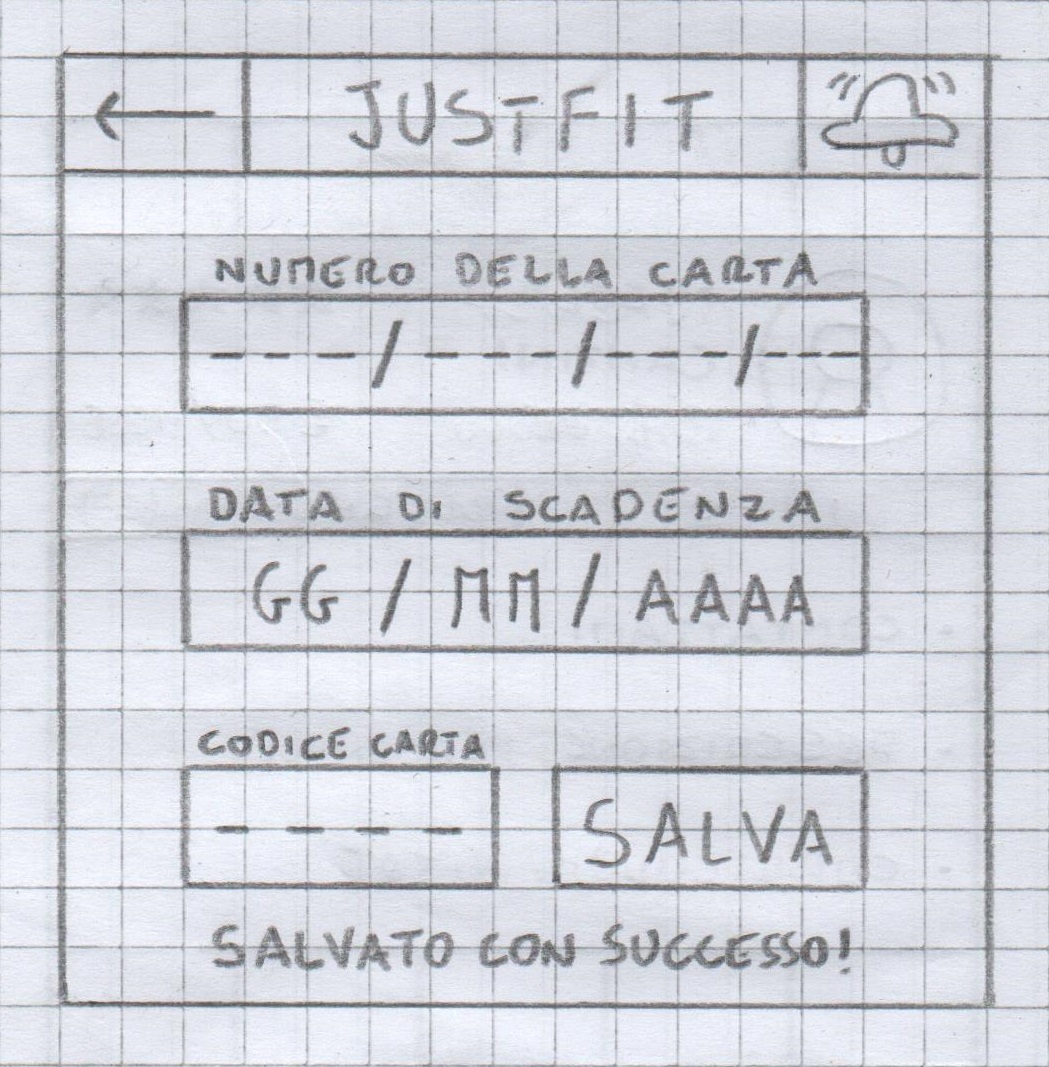 JUSTFIT
NUMERO DELLA CARTA
----/----/----/----
DATA DI SCADENZA
GG / MM / AAAA
CODICE CARTA
- - - -
SALVA
SALVATO CON SUCCESSO!